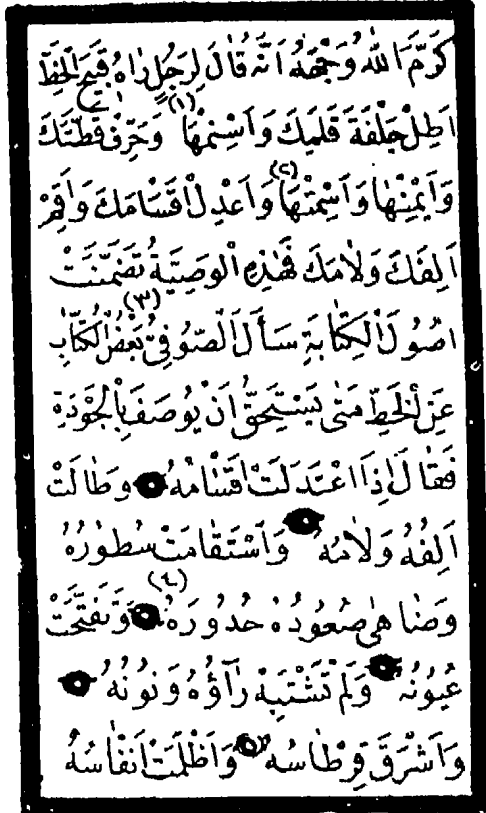 كَرَّمَ اللّٰهُ وَجْهَهُ اَنَّهُ قَالَ لِرَجُلٍ رَاٰهُ قَبِيحَ الْخَطِّ
اَطِلْ جِلْفَةَ قَلَمِكَ وَاَسْمِنْهَا (١) وَحَرِّفْ قَطَّتَكَ
وَاَيْمِنْهَا وَاَسْمِتْهَا (٢) وَاَعْدِلْ اَقْسَامَكَ وَاَقِمْ
اَلِفَكَ وَلَامَكَ فَهٰذِهِ الْوَصِيَّةُ تَضَمَّنَتْ
اُصُولَ الْكِتَابَةِ (٣) سَأَلَ الصُّوفِيُّ بَعْضَ الْكُتَّابِ
عَنِ الْخَطِّ مَتٰى يَسْتَحِقُّ اَنْ يُوصَفَ بِالْجَوْدَةِ
فَقَالَ اِذَا اعْتَدَلَتْ اَقْسَامُهُ وَطَالَتْ
اَلِفُهُ وَلَامُهُ وَاَسْتَقَامَتْ سُطُورُهُ
وَضَاهٰى صُعُودُهُ حُدُورَهُ (٤) وَتَفَتَّحَتْ
عُيُونُهُ وَلَمْ تَشْتَبِهْ رَآؤُهُ وَنُونُهُ
وَاَشْرَقَ قِرْطَاسُهُ (٥) وَاَظْلَمَتْ اَنْفَاسُهُ